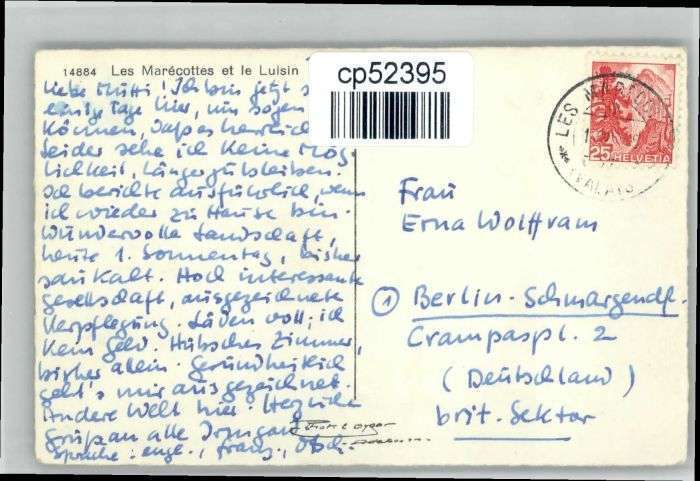 14884 Les Marécottes et le Luisin
cp52395
Liebe Mutti! Ich bin jetzt s
einige Tage hier, um sagen
können, daß es herrlich
Leider sehe ich keine Mög-
lichkeit, länger zu bleiben.
Ich berichte ausführlich, wenn
ich wieder zu Hause bin.
Wundervolle Landschaft,
heute 1. Sonnentag, bisher
saukalt. Hoch interessante
Gesellschaft, ausgezeichnete
Verpflegung. Läden voll; ich
kein Geld. Hübsches Zimmer,
bisher allein. Gesundheitlich
geht's mir ausgezeichnet.
Andere Welt hier. Herzliche
Grüße an alle
Sprache: engl., franz., dtsch.
25 HELVETIA
LES MARÉCOTTES
(VALAIS)
Frau
Erna Wolffram
① Berlin-Schmargendf.
Crampaspl. 2
(Deutschland)
brit. Sektor